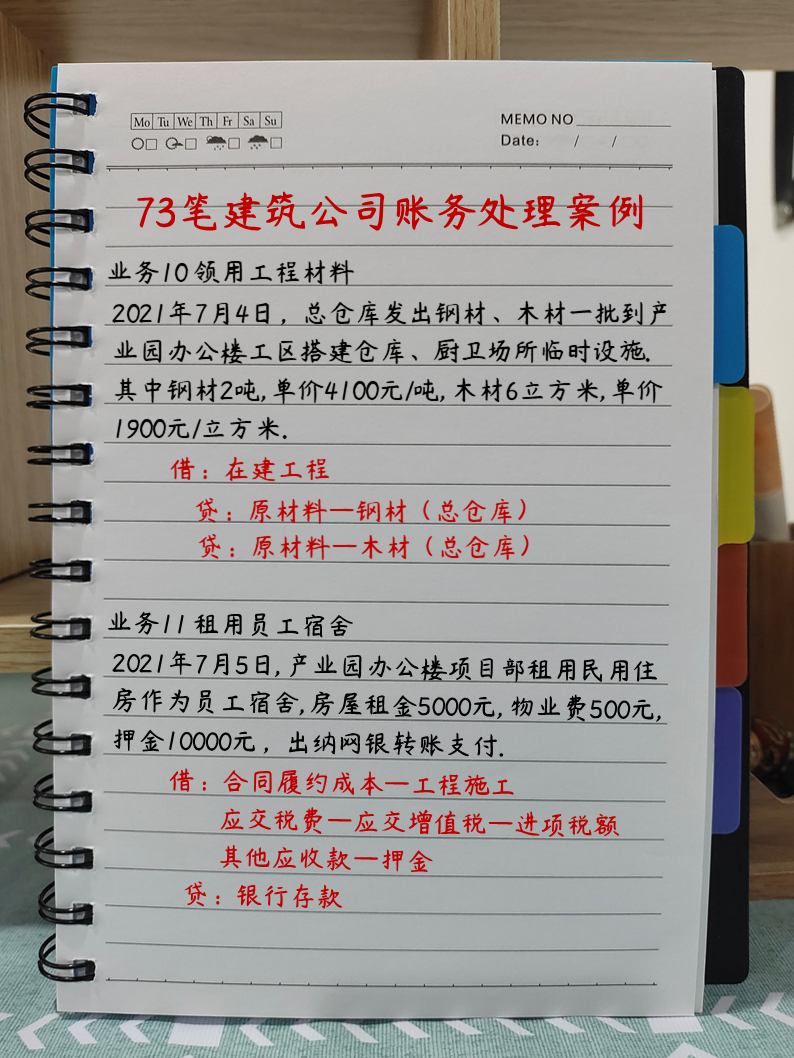 Mo Tu We Th Fr Sa Su
MEMO NO
Date: / /
73笔建筑公司账务处理案例
业务10领用工程材料
2021年7月4日，总仓库发出钢材、木材一批到产
业园办公楼工区搭建仓库、厨卫场所临时设施.
其中钢材2吨,单价4100元/吨,木材6立方米,单价
1900元/立方米.
借：在建工程
贷：原材料—钢材（总仓库）
贷：原材料—木材（总仓库）
业务11租用员工宿舍
2021年7月5日,产业园办公楼项目部租用民用住
房作为员工宿舍,房屋租金5000元,物业费500元,
押金10000元，出纳网银转账支付.
借：合同履约成本—工程施工
应交税费—应交增值税—进项税额
其他应收款—押金
贷：银行存款